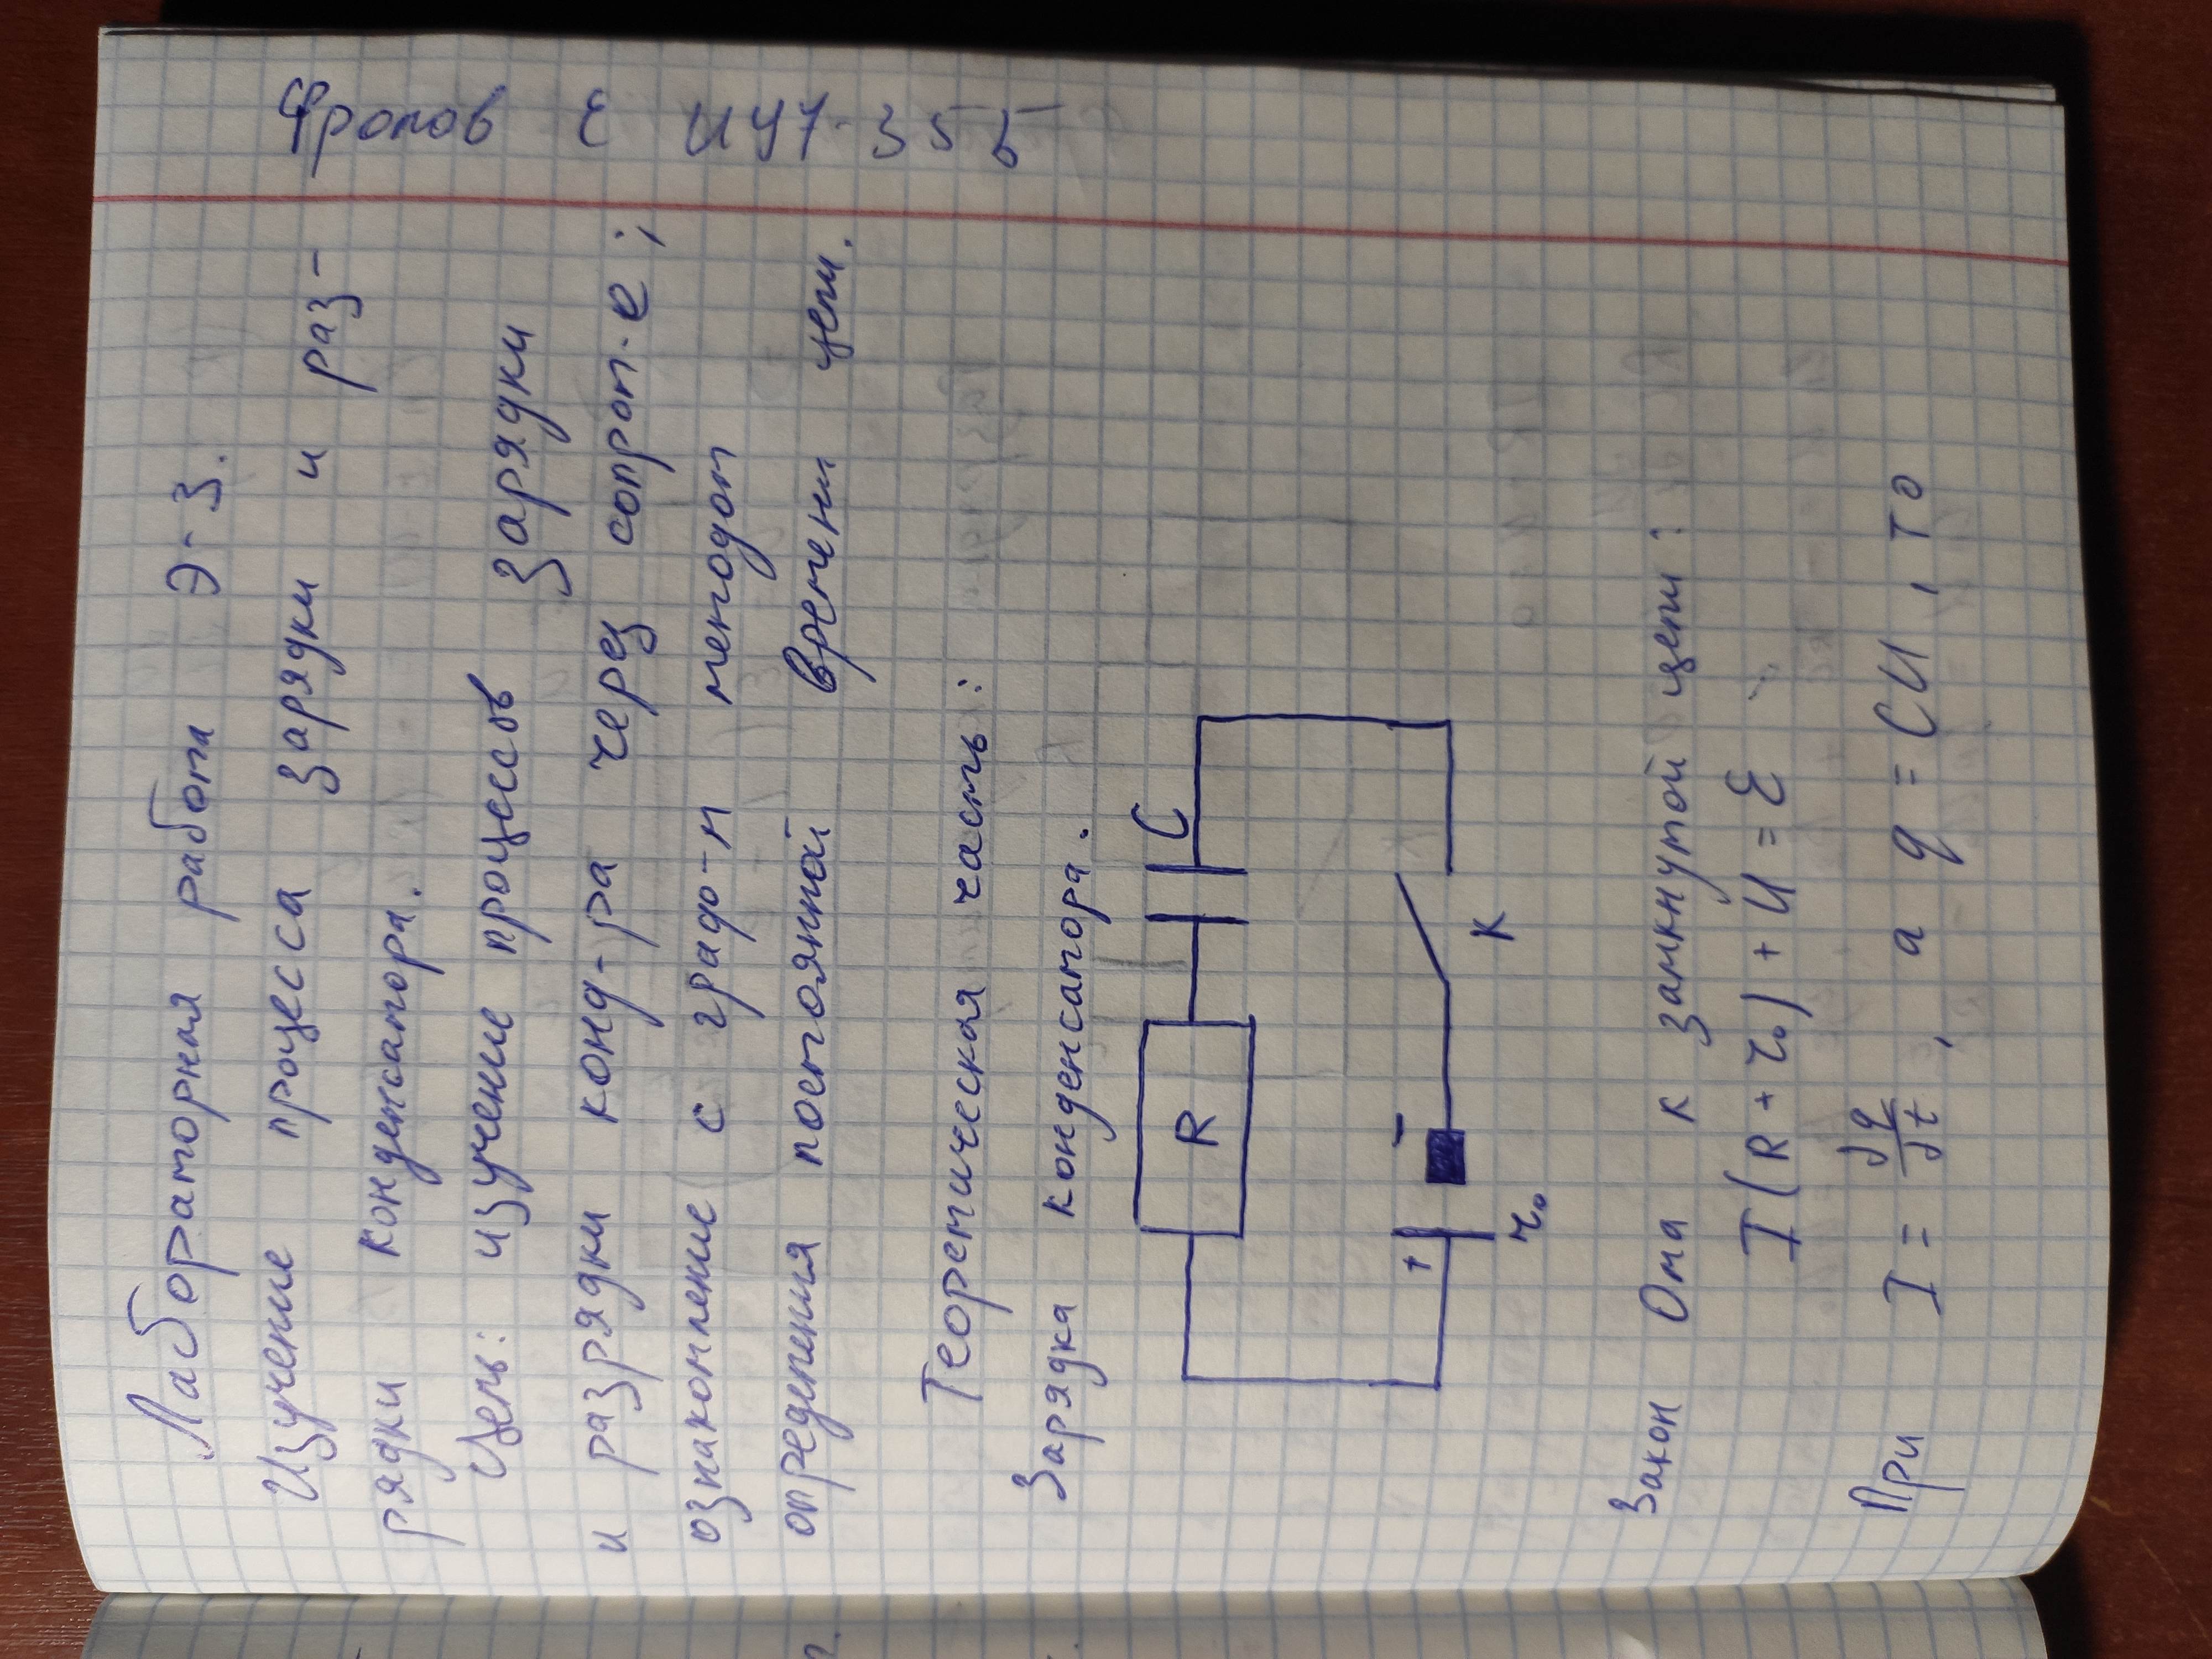 Лабораторная работа Э-3.
Изучение процесса зарядки и раз-
рядки конденсатора.
Цель: изучение процессов зарядки
и разрядки конд-ра через сопрот-е;
ознакомление с графо-м методом
определения постоянной времени цепи.
Теоретическая часть:
Зарядка конденсатора.
R
C
+
-
r₀
K
Закон Ома к замкнутой цепи:
I(R + r₀) + U = Ɛ
При I = ∂q/∂t, а q = CU, то
ИУ7-35Б